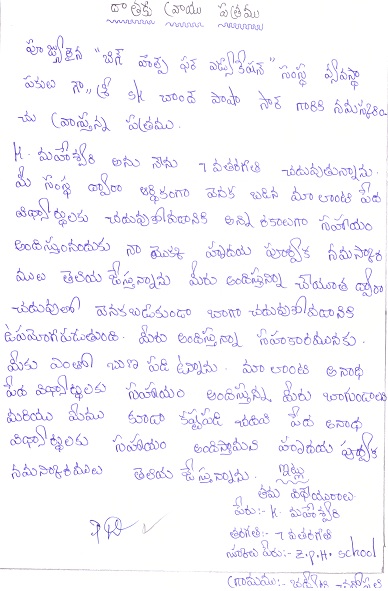 దాతకు వ్రాయు పత్రము
పూజ్యులైన "బిగ్ హెల్ప్ ఫర్ ఎడ్యుకేషన్" సంస్థ వ్యవస్థా
పకులు గా,, శ్రీ sk చాంద్ పాషా సార్ గారికి నమస్కరిం
చు వ్రాస్తున్న పత్రము.
K. మహేశ్వరి అను నేను 7 వతరగతి చదువుతున్నాను.
మీ సంస్థ ద్వారా ఆర్థికంగా వెనక బడిన మా లాంటి పేద
విధ్యార్థులకు చదువుకోవడానికి అన్ని రకాలుగా సహాయం
అందిస్తునందుకు నా యొక్క హృదయ పూర్వక నమస్కార
ములు తెలియ జేస్తున్నాను మీరు అందిస్తున్నా చేయూత ద్వారా
చదువులో వెనకబడకుండా బాగా చదువుకోవడానికి
ఉపయోగపడుతుంది. మీరు అందిస్తున్నా సహకారమునకు.
మీకు ఎంతో ఋణ పడి ఉన్నాను. మా లాంటి అనాథ
పేద విధ్యార్థులకు సహాయం అందిస్తున్న మీరు బాగుండాలి
మరియు మేము కూడా కష్టపడి చదివి పేద అనాథ
విధ్యార్థులకు సహాయం అందిస్తామని హృదయ పూర్వక
నమస్కారములు తెలియ జేస్తున్నాను.
ఇట్లు
తమ విధేయురాలు
పేరు:- K. మహేశ్వరి
తరగతి:- 7 వతరగతి
స్కూలు పేరు:- Z.P.H. school
గ్రామము:-